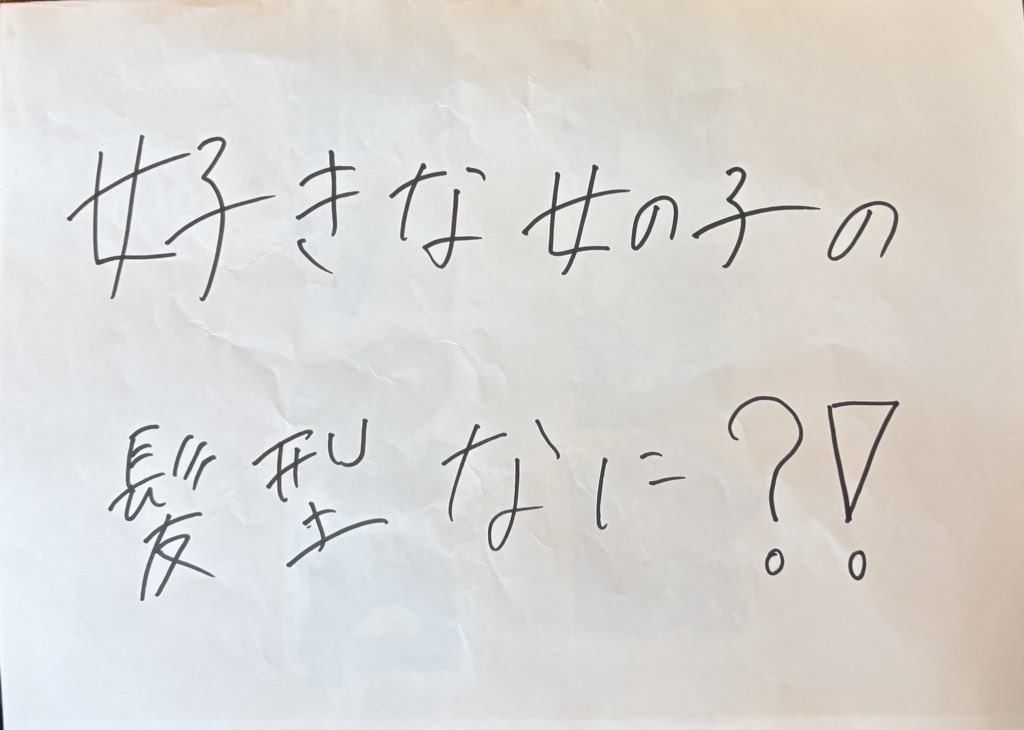 好きな女の子の
髪型なに?!